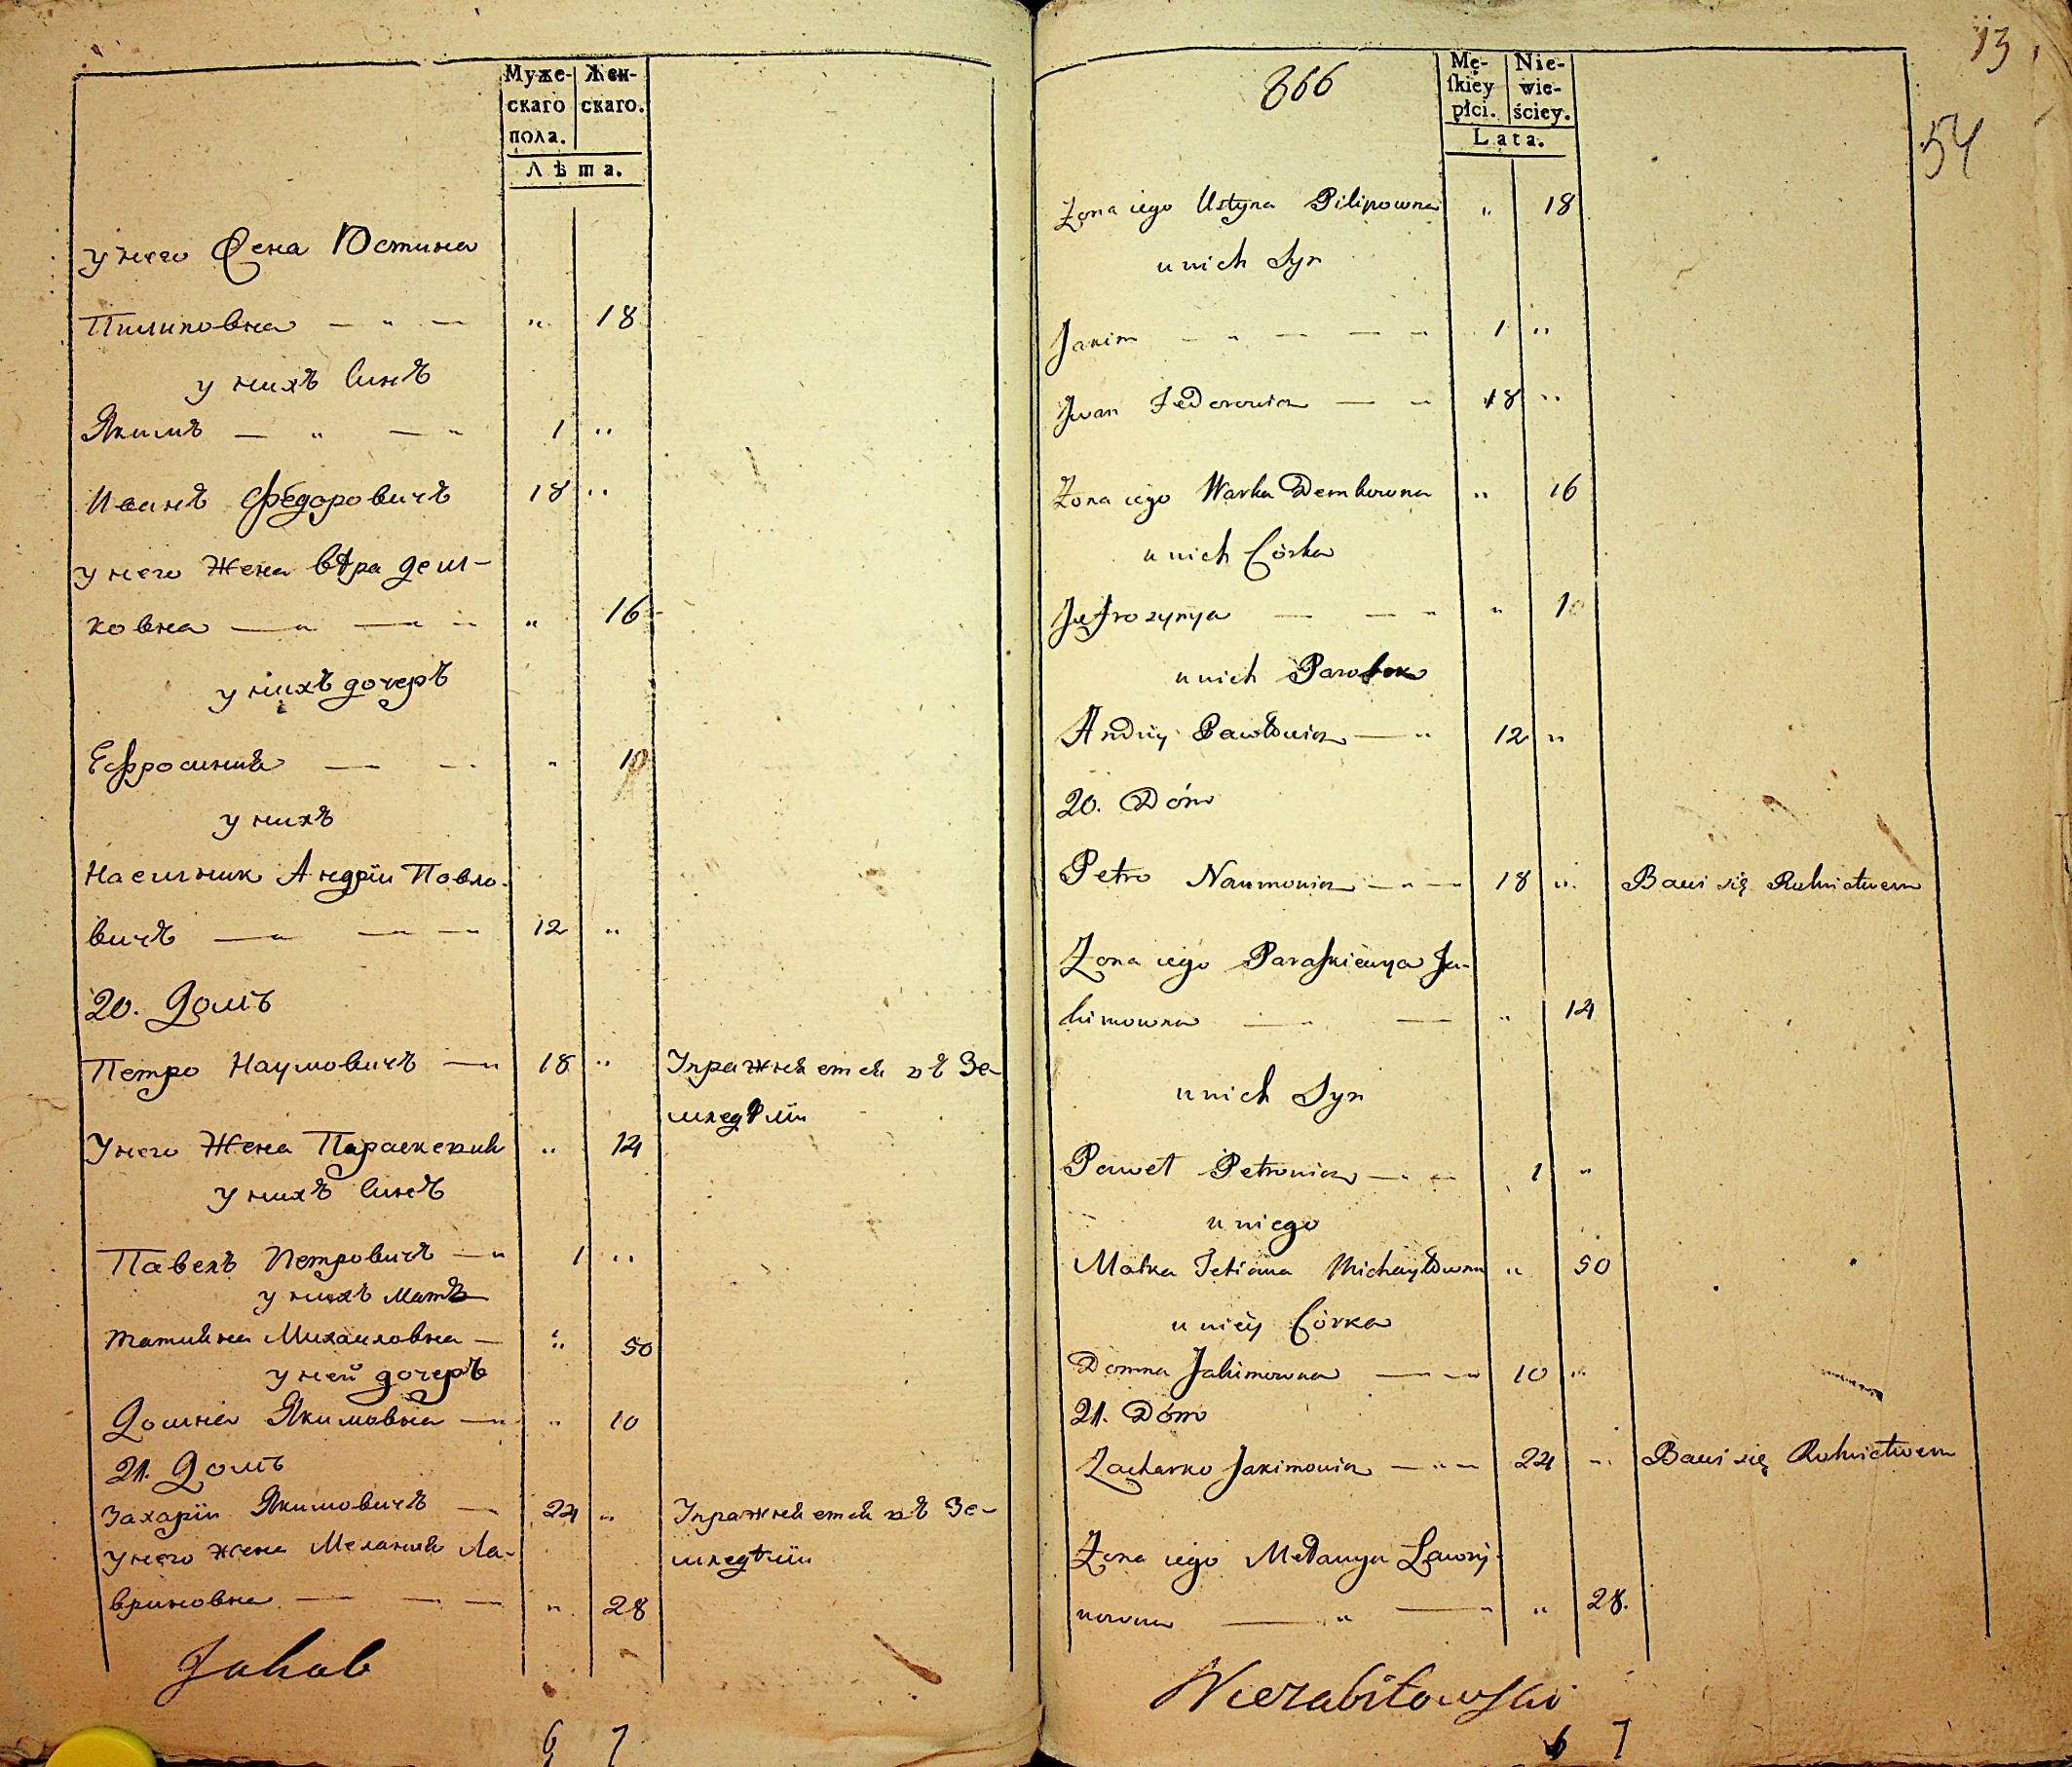 Муже-
скаго
пола.
Жен-
скаго.
Лѣта.
у него Жена Юстина
Пилиповна — „ — „ 18
у нихъ Синъ
Якимъ — „ — „ 1 „
Иванъ Федоровичъ 18 „
у него Жена вѣра дем-
ковна — „ — „ „ „ 16
у нихъ дочеръ
Ефросинія — — „ 10
у нихъ
Наемник Андрiи Павло-
вичъ — „ — „ — 12 „
20. Домъ
Петро Наумовичъ — „ 18 „ Упражняется въ Зе-
мледѣліи
У него Жена Параскевия „ 14
у нихъ Синъ
Павелъ Петровичъ — „ 1 „
у нихъ Матъ
татияна Михаиловна — „ 50
у ней дочеръ
Домна Якимовна — „ „ 10
21. Домъ
Захарiи Якимовичъ — 24 „ Упражняется въ Зе-
у него жена Мелания Ла-
мледѣліи
вриновна — — — „ 28
Jakub
6 7
13
54
866
Mę-
ſkiey
płci.
Nie-
wie-
ściey.
Lata.
Żona iego Ustyna Pilipowna „ 18
u nich Syn
Jakim — „ — — „ 1 „
Jwan Fedorowicz — „ 18 „
Żona iego Warka Demkowna „ 16
u nich Córka
Jefrozynya — — „ „ 10
u nich Parobok
Andriy Pawłowicz — „ 12 „
20. Dóm
Petro Naumowicz — „ — 18 „ Bawi się Rolnictwem
Żona iego Paraſkiewya Ja-
kimowna — — „ 14
u nich Syn
Paweł Petrowicz — „ — 1 „
u niego
Matka Tetiana Michayłowna „ 50
u niéy Córka
Domna Jakimowna — „ — 10 „
21. Dóm
Zacharko Jakimowicz — „ — 24 „ Bawi się Rolnictwem
Żona iego Mełanya Ławry-
nowna — „ — „ „ 28.
Wierzbiłowſki
6 7